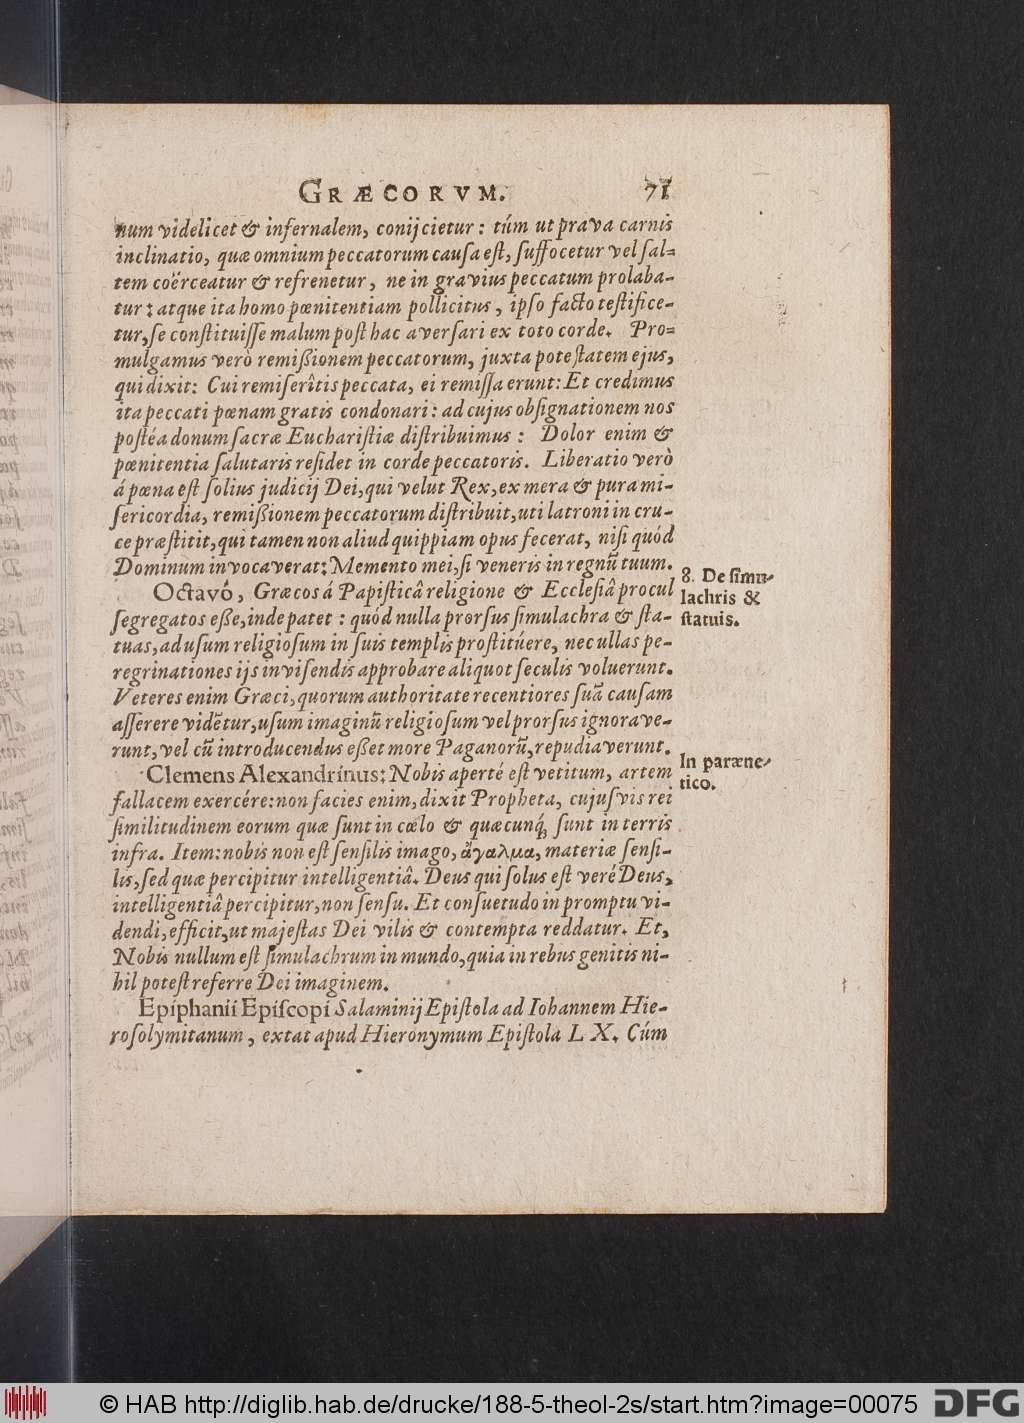 GRÆCORVM. 71
num videlicet & infernalem, conijcietur: túm ut prava carnis
inclinatio, quæ omnium peccatorum causa est, suffocetur vel sal=
tem coërceatur & refrenetur, ne in gravius peccatum prolaba-
tur: atque ita homo pœnitentiam pollicitus, ipso facto testifice-
tur, se constituisse malum post hac aversari ex toto corde. Pro=
mulgamus verò remißionem peccatorum, juxta potestatem ejus,
qui dixit: Cui remiserîtis peccata, ei remissa erunt: Et credimus
ita peccati pœnam gratis condonari: ad cujus obsignationem nos
postéa donum sacræ Eucharistiæ distribuimus: Dolor enim &
pœnitentia salutaris residet in corde peccatoris. Liberatio verò
á pœna est solius judicij Dei, qui velut Rex, ex mera & pura mi-
sericordia, remißionem peccatorum distribuit, uti latroni in cru-
ce præstitit, qui tamen non aliud quippiam opus fecerat, nisi quód
Dominum invocaverat: Memento mei, si veneris in regnũ tuum.
8. De simu-
lachris &
statuis.
Octavó, Græcos á Papisticâ religione & Ecclesiâ procul
segregatos eße, inde patet: quód nulla prorsus simulachra & sta-
tuas, ad usum religiosum in suis templis prostitúere, nec ullas pe-
regrinationes ijs invisendis approbare aliquot seculis voluerunt.
Veteres enim Græci, quorum authoritate recentiores suã causam
asserere vidẽtur, usum imaginũ religiosum vel prorsus ignorave-
runt, vel cũ introducendus eßet more Paganorũ, repudiaverunt.
In paræne-
tico.
Clemens Alexandrinus: Nobis aperté est vetitum, artem
fallacem exercére: non facies enim, dixit Propheta, cujusvis rei
similitudinem eorum quæ sunt in cœlo & quæcunq́; sunt in terris
infra. Item: nobis non est sensilis imago, ἄγαλμα, materiæ sensi-
lis, sed quæ percipitur intelligentiâ. Deus qui solus est veré Deus,
intelligentiâ percipitur, non sensu. Et consuetudo in promptu vi-
dendi, efficit, ut majestas Dei vilis & contempta reddatur. Et,
Nobis nullum est simulachrum in mundo, quia in rebus genitis ni-
hil potest referre Dei imaginem.
Epiphanii Episcopi Salaminij Epistola ad Iohannem Hie-
rosolymitanum, extat apud Hieronymum Epistola LX. Cúm
© HAB http://diglib.hab.de/drucke/188-5-theol-2s/start.htm?image=00075
DFG